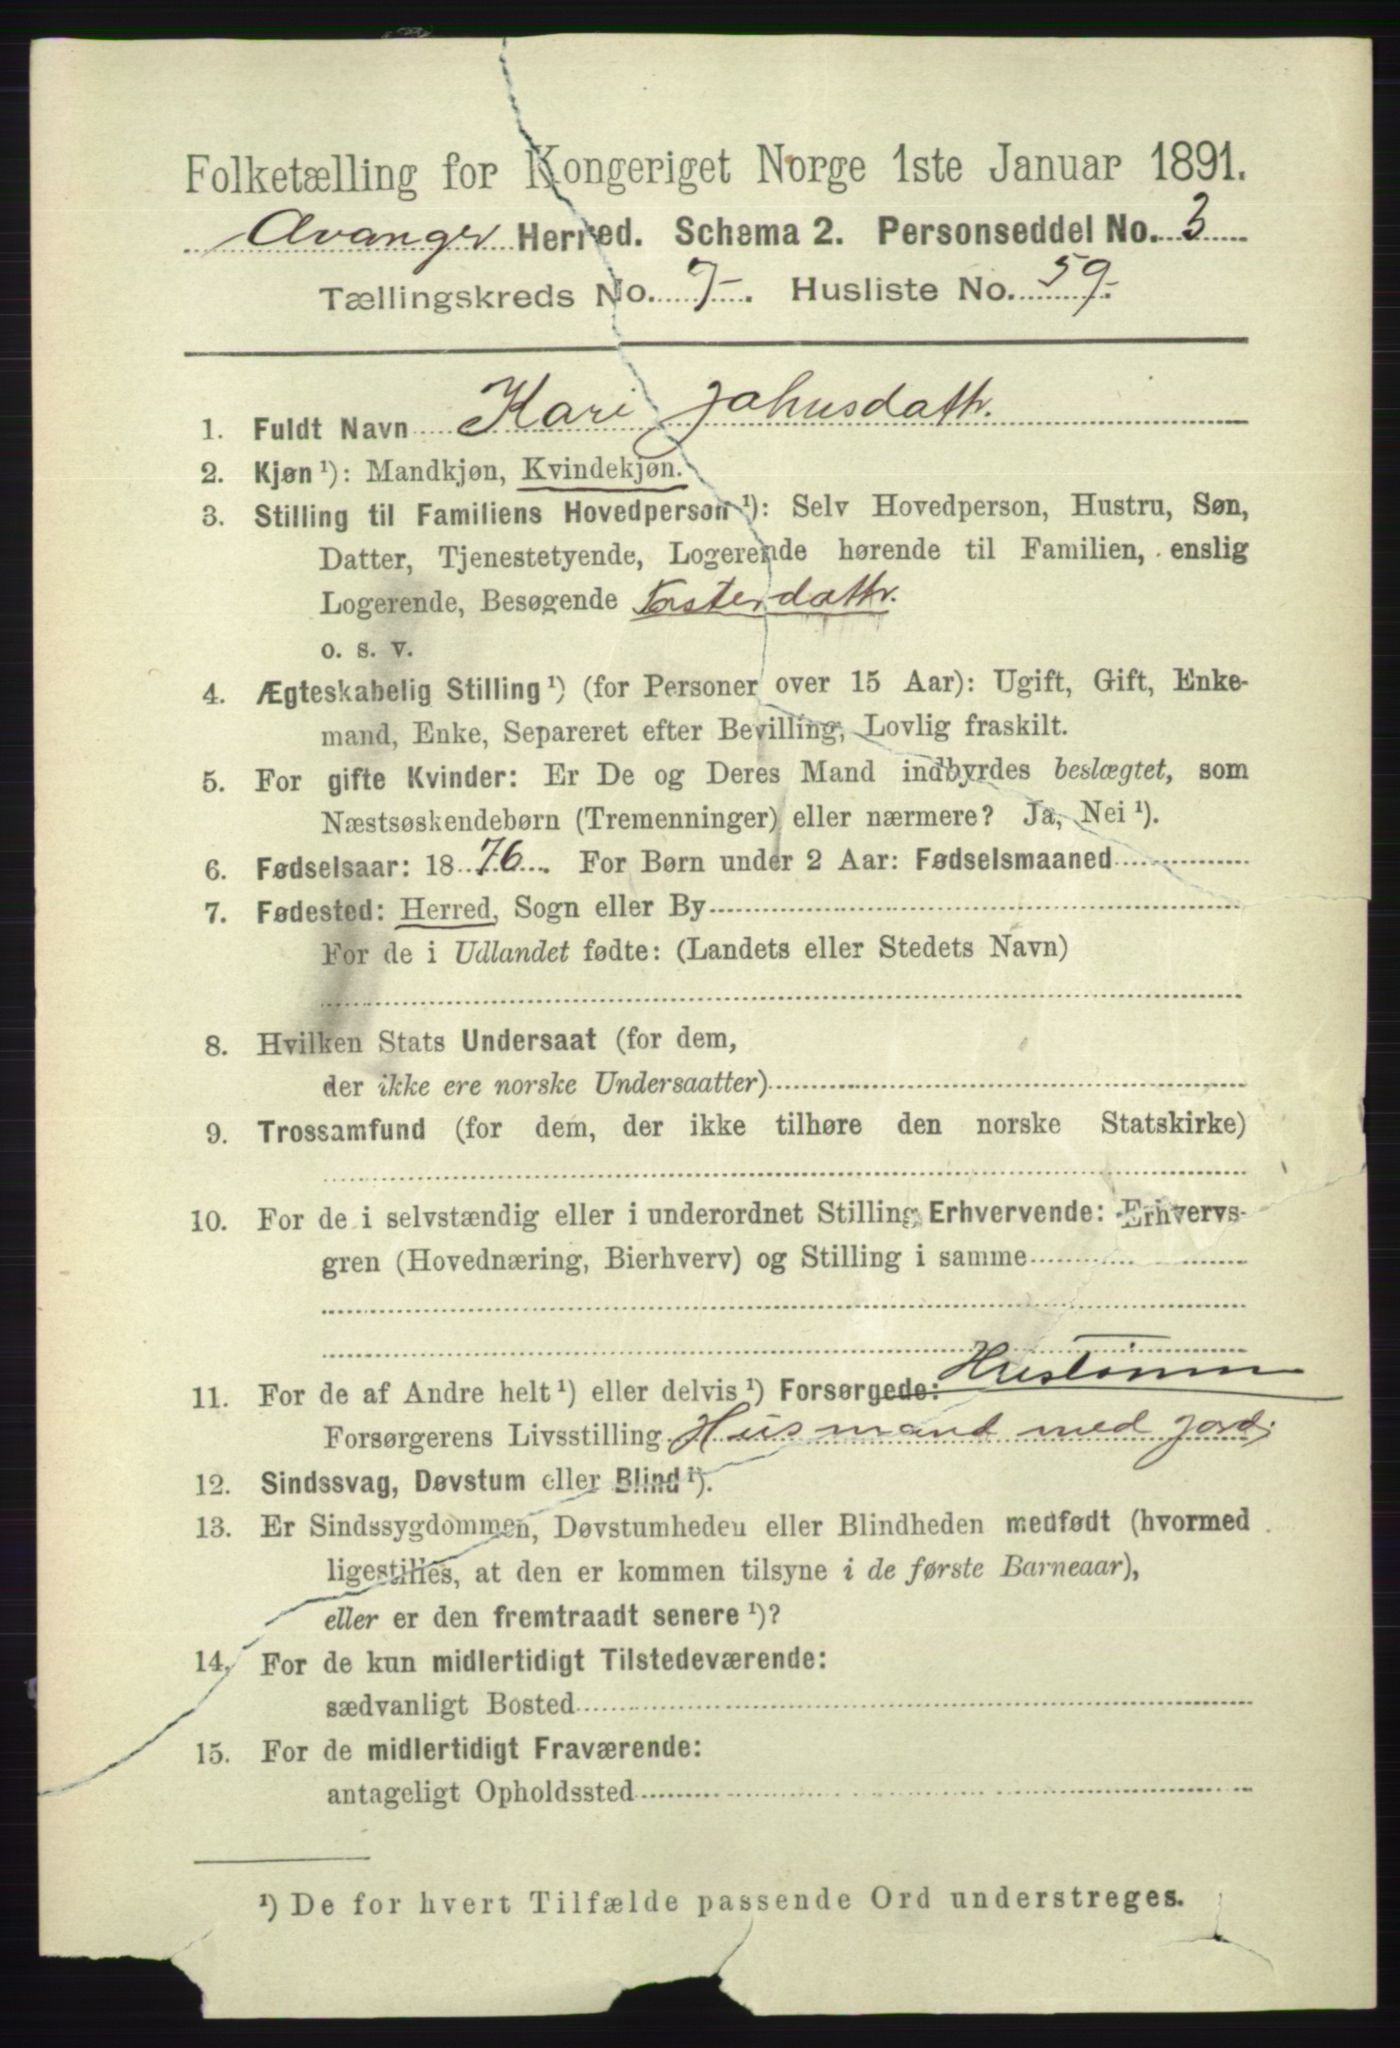 Folketælling for Kongeriget Norge 1ste Januar 1891.
Avanger Herred. Schema 2. Personseddel No. 3
Tællingskreds No. 7-. Husliste No. 59-.
1. Fuldt Navn Kari Johnsdattr.
2. Kjøn ¹): Mandkjøn, Kvindekjøn.
3. Stilling til Familiens Hovedperson ¹): Selv Hovedperson, Hustru, Søn,
Datter, Tjenestetyende, Logerende hørende til Familien, enslig
Logerende, Besøgende Fosterdattr.
o. s. v.
4. Ægteskabelig Stilling ¹) (for Personer over 15 Aar): Ugift, Gift, Enke-
mand, Enke, Separeret efter Bevilling, Lovlig fraskilt.
5. For gifte Kvinder: Er De og Deres Mand indbyrdes beslægtet, som
Næstsøskendebørn (Tremenninger) eller nærmere? Ja, Nei ¹).
6. Fødselsaar: 1876. For Børn under 2 Aar: Fødselsmaaned
7. Fødested: Herred, Sogn eller By
For de i Udlandet fødte: (Landets eller Stedets Navn)
8. Hvilken Stats Undersaat (for dem,
der ikke ere norske Undersaatter)
9. Trossamfund (for dem, der ikke tilhøre den norske Statskirke)
10. For de i selvstændig eller i underordnet Stilling Erhvervende: Erhvervs-
gren (Hovednæring, Bierhverv) og Stilling i samme
11. For de af Andre helt ¹) eller delvis ¹) Forsørgede:
Forsørgerens Livsstilling Husmand med jord;
12. Sindssvag, Døvstum eller Blind ¹).
13. Er Sindssygdommen, Døvstumheden eller Blindheden medfødt (hvormed
ligestilles, at den er kommen tilsyne i de første Barneaar),
eller er den fremtraadt senere ¹)?
14. For de kun midlertidigt Tilstedeværende:
sædvanligt Bosted
15. For de midlertidigt Fraværende:
antageligt Opholdssted
¹) De for hvert Tilfælde passende Ord understreges.